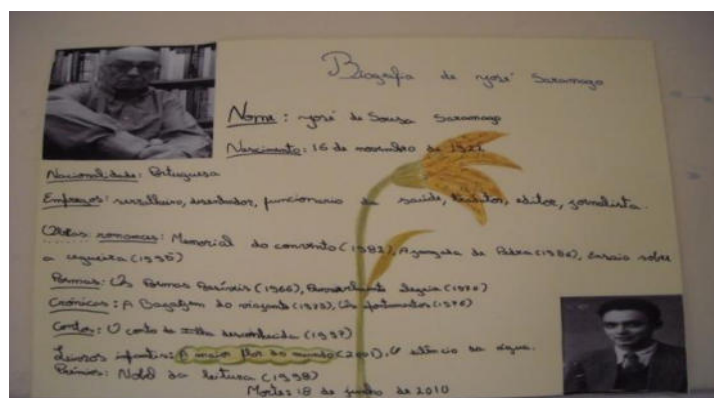 Biografia de José Saramago
Nome: José de Sousa Saramago
Nascimento: 16 de novembro de 1922
Nacionalidade: Portuguesa
Empregos: serralheiro, desenhador, funcionario da saúde, editor, jornalista.
Obras: romances: Memorial do convento (1982), A jangada de Pedra (1986), Ensaio sobre
a cegueira (1995)
Poemas: Os Poemas Possíveis (1966), Provavelmente Alegria (1970)
Crónicas: A Bagagem do viajante (1973), Os Apontamentos (1976)
Contos: O conto da ilha desconhecida (1997)
Leituras infantis: A maior flor do mundo (2001), O silêncio da água.
Prémios: Nobel da leitura (1998)
Morte: 18 de junho de 2010